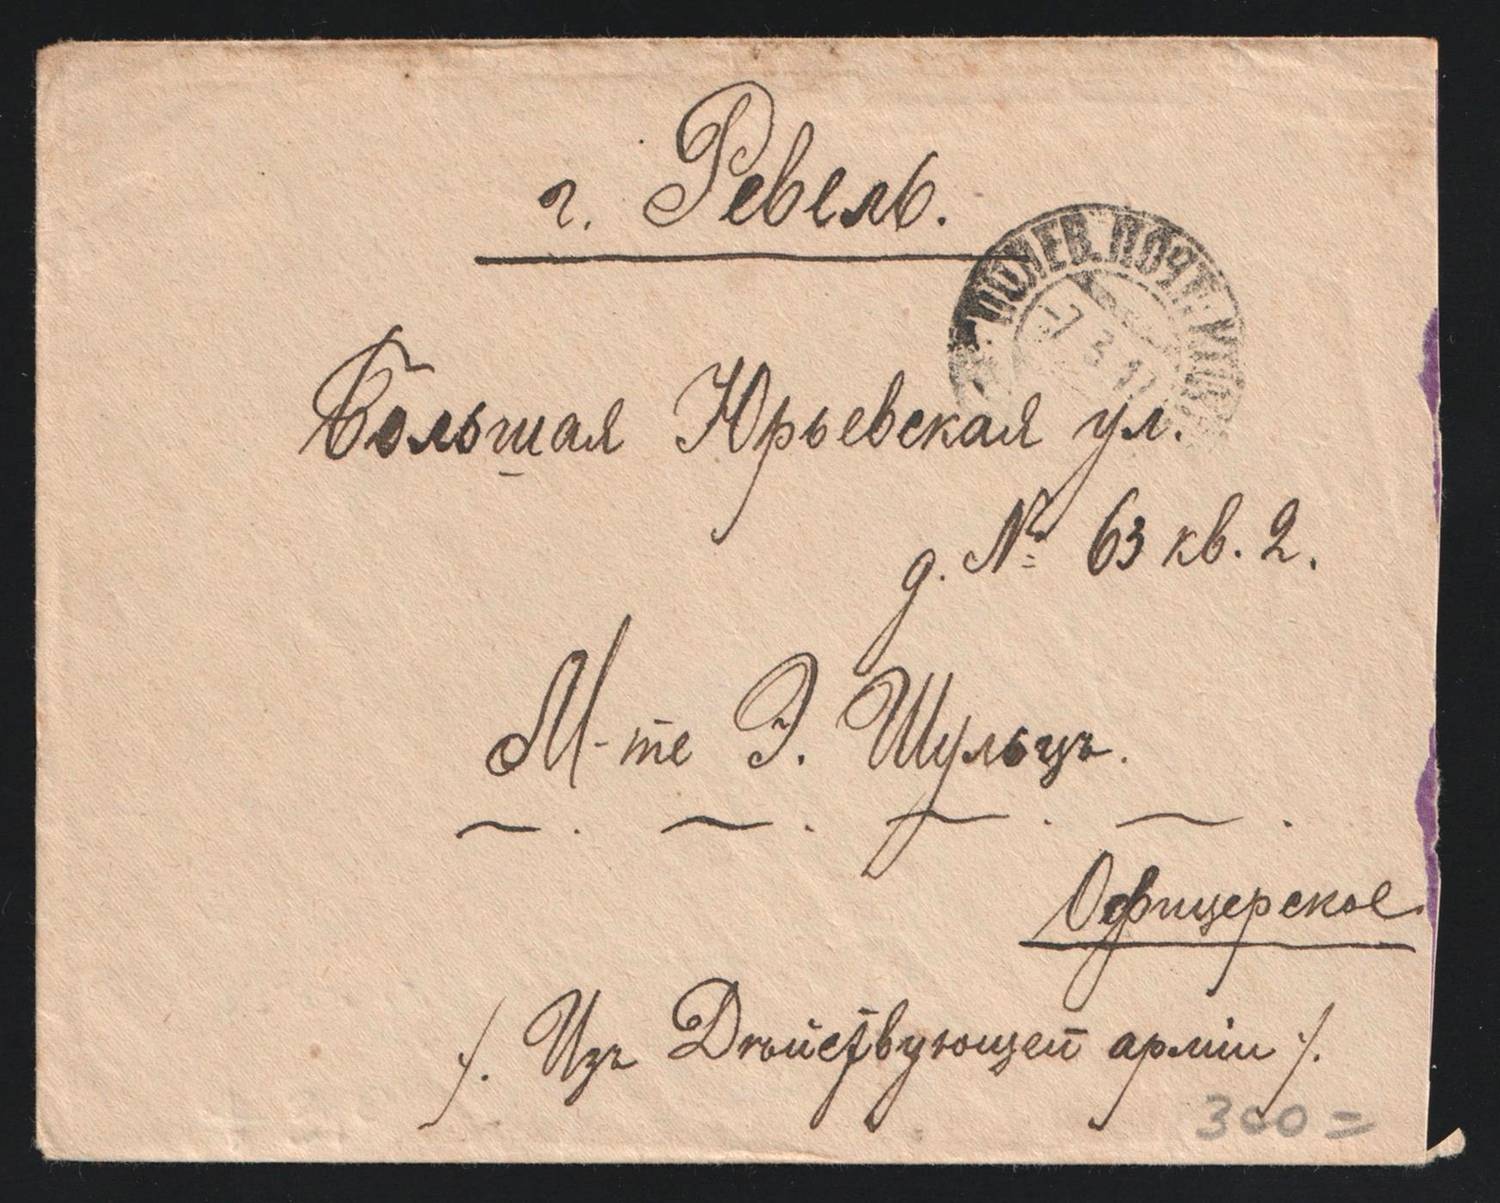 г. Ревель.
ПОЛЕВ. ПОЧТ.
7 3 17
Большая Юрьевская ул.
д. № 63 кв. 2.
М-те Э. Шульцъ.
Офицерское.
/. Изъ Дѣйствующей арміи /.
300 =